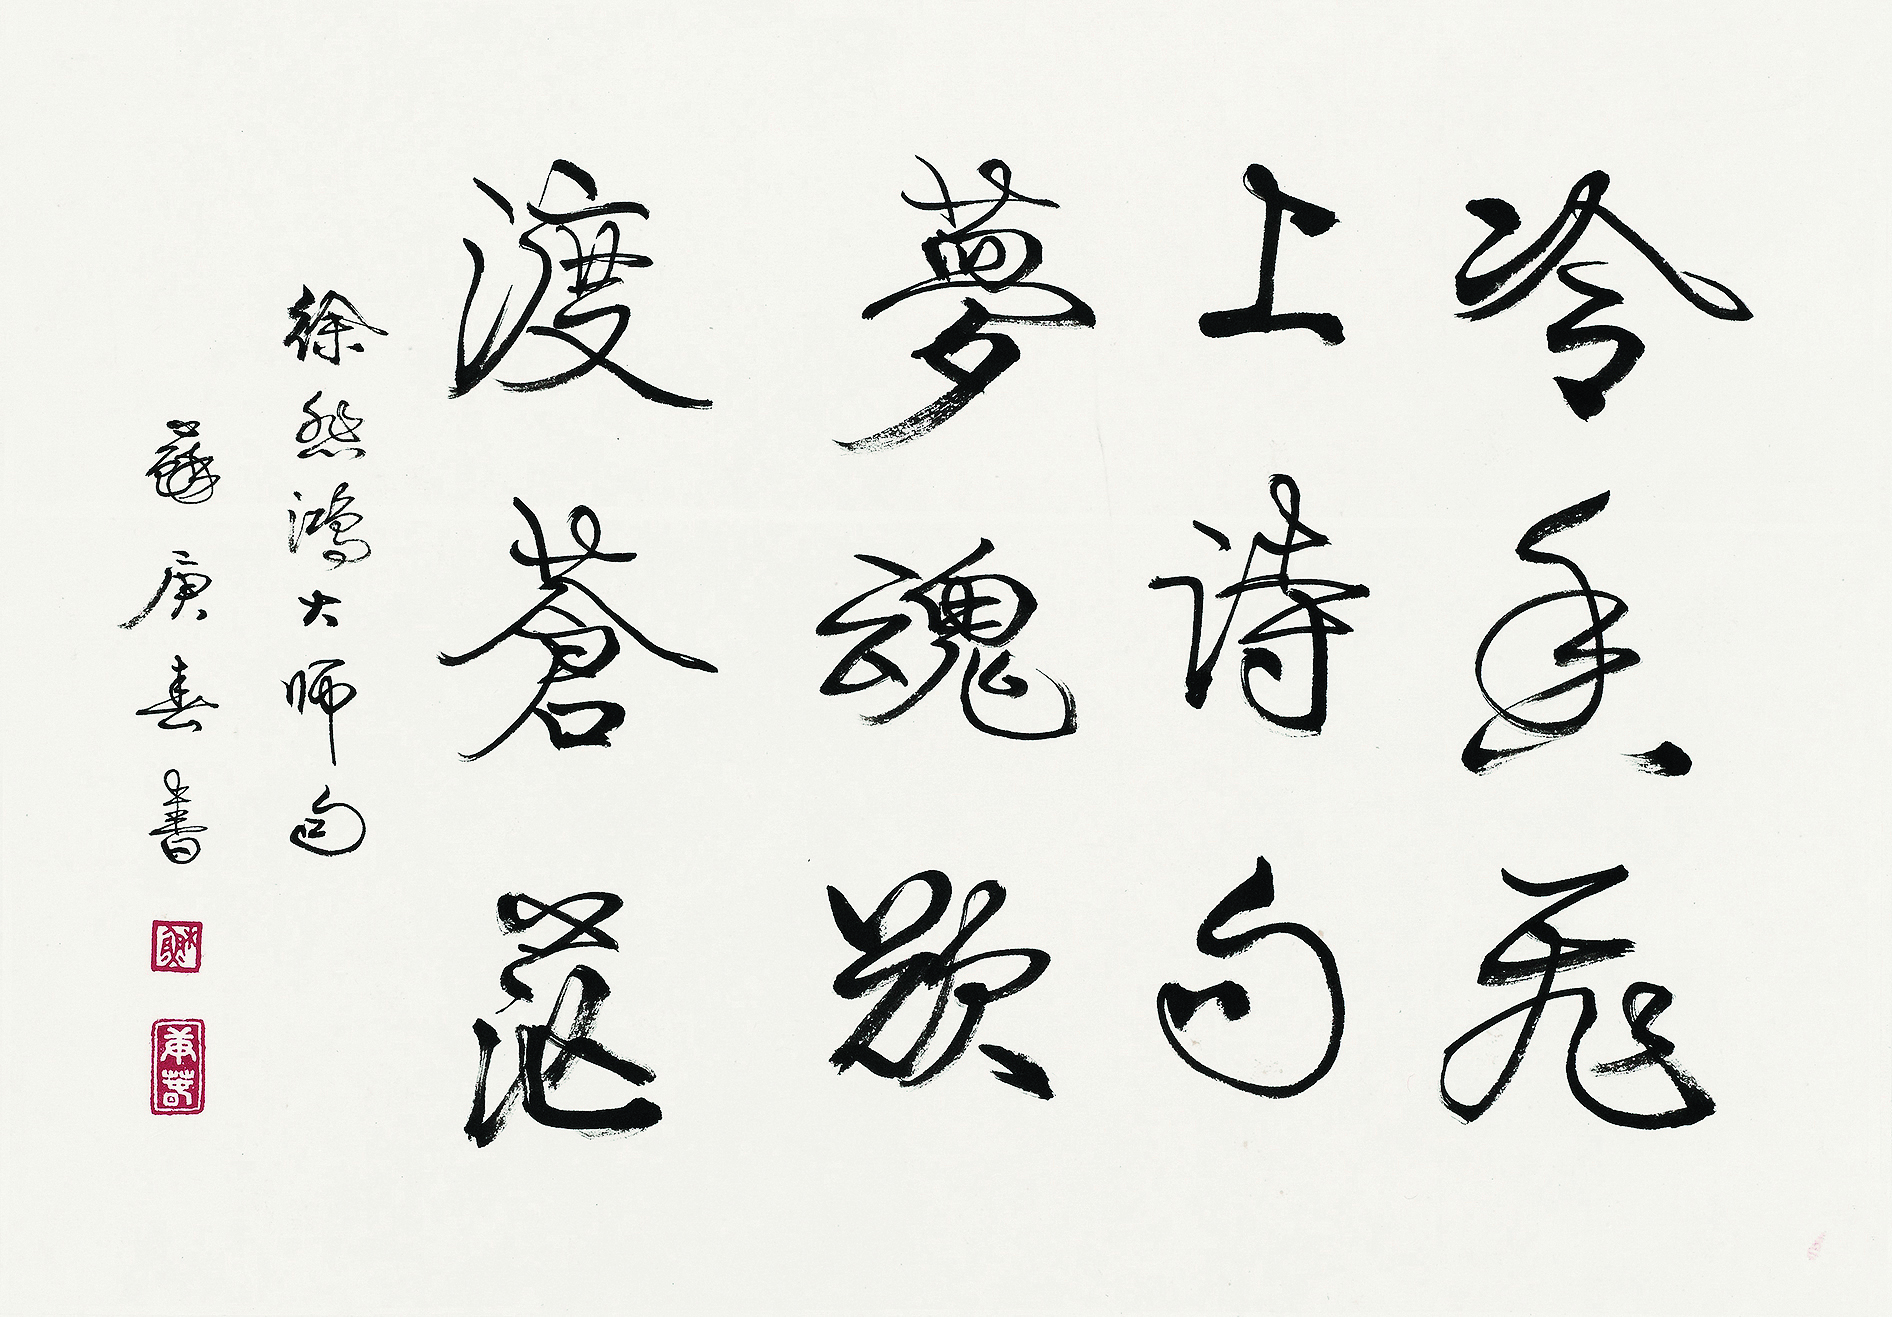 冷香飛
上詩句
夢魂欲
渡蒼茫
徐悲鴻大師句
蘇庚春書
蘇
庚春